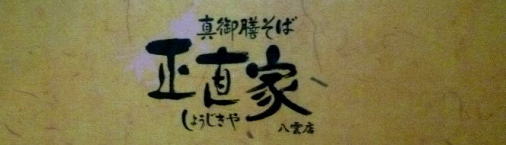 真御膳そば
正直家
しょうじきや
八雲店